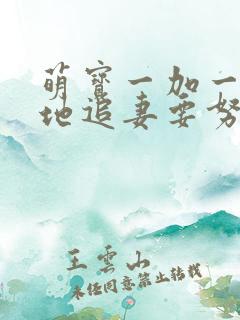 萌寶一加一
地追妻要努
王雲山
未經同意禁止轉載